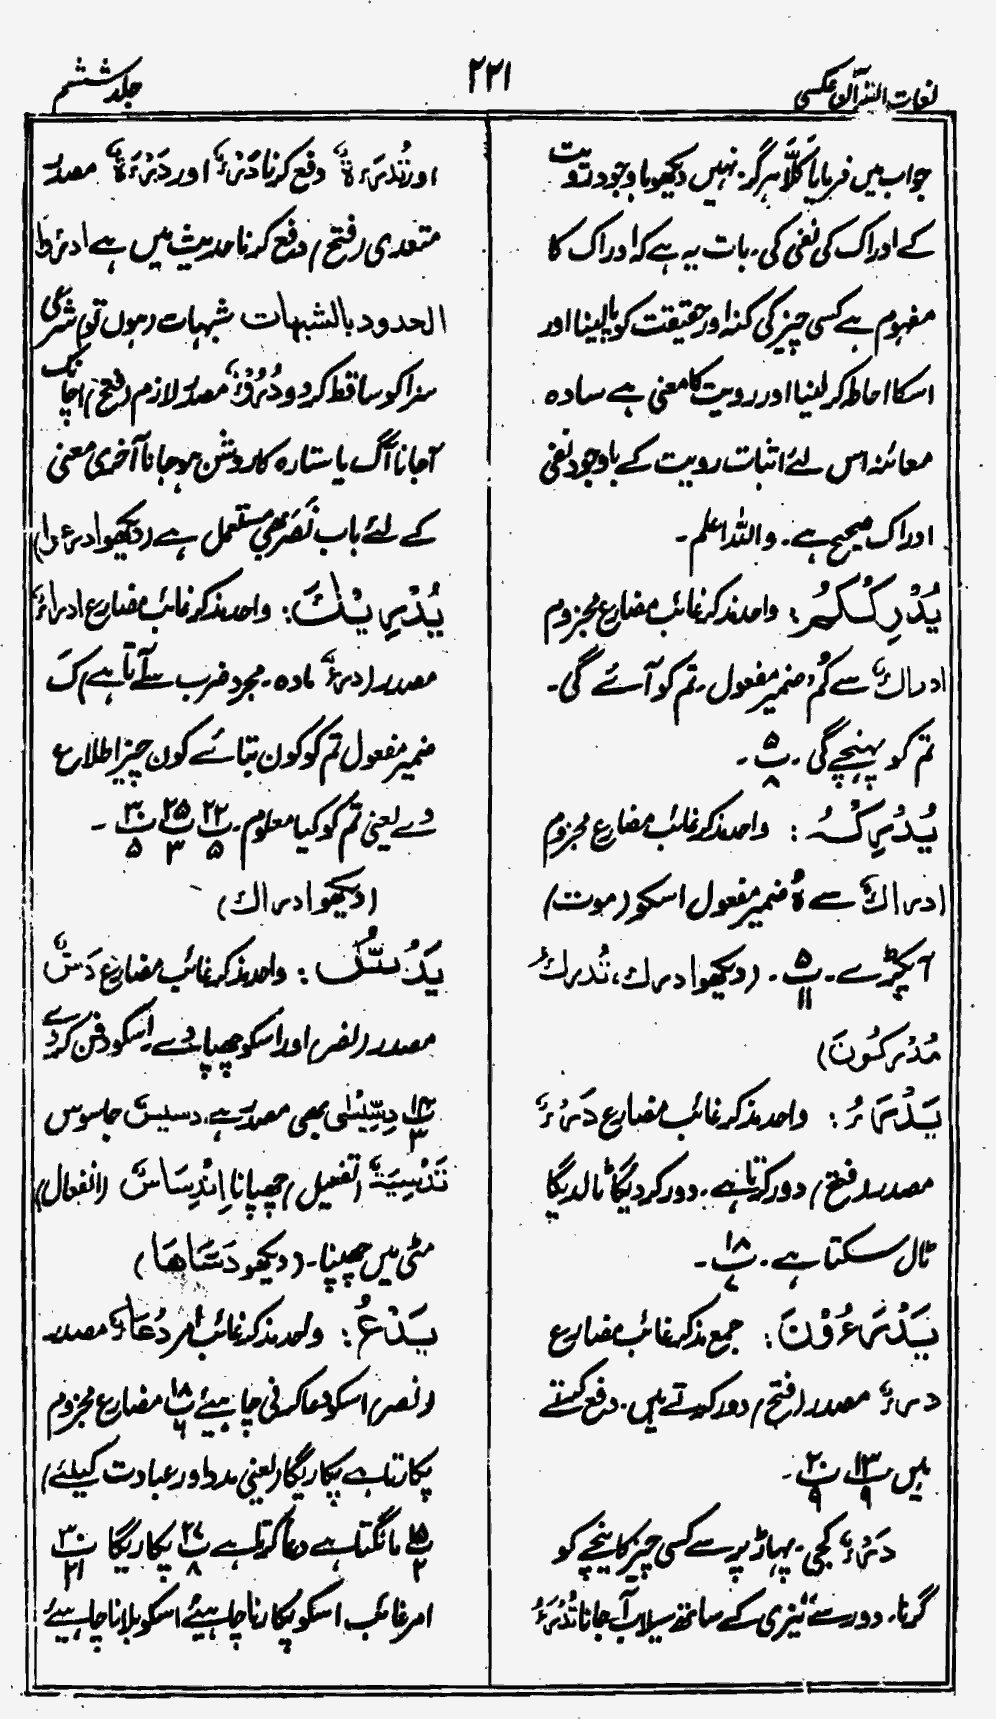 لغات القرآن عکسی
۲۲۱
جلد ششم
جواب میں فرمایا کَلَّا ہرگز نہیں دیکھو باوجود رویت
کے ادراک کی نفی کی۔ بات یہ ہے کہ ادراک کا
مفہوم ہے کسی چیز کی کنہ اور حقیقت کو پالینا اور
اسکا احاطہ کر لینا اور رویت کا معنی ہے سادہ
معائنہ اس لئے اثبات رویت کے باوجود نفی
ادراک صحیح ہے۔ واللہ اعلم۔
یُدْرِکْکُمُ: واحد مذکر غائب مضارع مجزوم
ادراكٌ سے کُمْ ضمیر مفعول۔ تم کو آئے گی۔
تم کو پہنچے گی۔ پ ۵ ۸ ۔
یُدْرِکْہُ: واحد مذکر غائب مضارع مجزوم
ادراكٌ سے ہُ ضمیر مفعول اسکو (موت)
آپکڑے۔ پ ۵ ۱۱ ۔ (دیکھو ادرك، تُدرِكُ
مُدْرَکُونَ)
یَدْرَءُ: واحد مذکر غائب مضارع دَرْءٌ
مصدر (فتح) دور کرتا ہے۔ دور کر دیگا ٹالدیگا
ٹال سکتا ہے۔ پ ۱۸ ۷ ۔
یَدْرَءُوْنَ: جمع مذکر غائب مضارع
درءٌ مصدر (فتح) دور کرتے ہیں۔ دفع کرتے
ہیں پ ۱۳ ۹ پ ۲۰ ۹ ۔
دَرْءٌ کجی۔ پہاڑ پر سے کسی چیز کا نیچے کو
گرنا۔ دور سے تیزی کے ساتھ سیلاب آجانا تُدْرَءُ
اور تُدْرَءَةٌ دفع کرنا دَرْءٌ اور دَرْءَةٌ مصدر
متعدی (فتح) دفع کرنا حدیث میں ہے ادرءوا
الحدود بالشبهات شبہات ہوں تو شرعی
سزا کو ساقط کر دو دُرُوْءٌ مصدر لازم (فتح) اچانک
آجانا آگ یا ستارہ کا روشن ہو جانا آخری معنی
کے لئے باب نَصَرَ بھی مستعمل ہے (دیکھو ادرءوا)
یُدْرِیْكَ: واحد مذکر غائب مضارع ادراءٌ
مصدر (درءٌ مادہ۔ مجرد ضرب سے آتا ہے) كَ
ضمیر مفعول تم کو کون بتائے کون چیز اطلاع
دے یعنی تم کو کیا معلوم۔ پ ۲۲ ۵ پ ۲۵ ۳ پ ۳۰ ۵ ۔
(دیکھو ادراك)
یَدُسُّہٗ: واحد مذکر غائب مضارع دَسٌّ
مصدر (نصر) اور اسکو چھپا دے۔ اسکو دفن کر دے
پ ۱۴ ۳ دِسِّیْسٰی بھی مصدر ہے۔ دسیسٌ جاسوس
تَدْسِیَةٌ (تفعیل) چھپانا اِنْدِسَاسٌ (انفعال)
مٹی میں چھپنا۔ (دیکھو دَسَّاهَا)
یَدْعُ: واحد مذکر غائب امر دُعَاءٌ مصدر
(نصر) اسکو دعا کرنی چاہیئے پ ۱۸ ۶ مضارع مجزوم
پکارتا ہے پکاریگا (یعنی مدد اور عبادت کیلئے)
پ ۱۵ ۲ مانگتا ہے دعا کرتا ہے پ ۲۷ ۸ پکاریگا پ ۳۰ ۲۱
امر غائب اسکو پکارنا چاہیئے اسکو بلانا چاہیئے